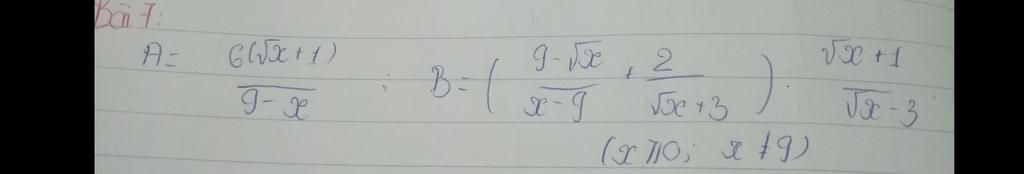 Bài 7:
A = 6(√x + 1) / (9 - x) ; B = ( (9 - √x) / (x - 9) + 2 / (√x + 3) ) : (√x + 1) / (√x - 3)
(x ≥ 0; x ≠ 9)